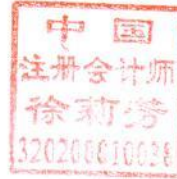 中国
注册会计师
徐莉芳
320200010038